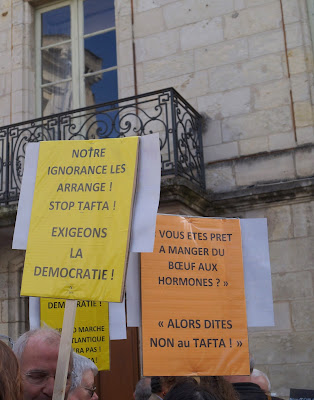 NOTRE
IGNORANCE LES
ARRANGE !
STOP TAFTA !
EXIGEONS
LA
DEMOCRATIE !
VOUS ETES PRET
A MANGER DU
BŒUF AUX
HORMONES ? »
« ALORS DITES
NON au TAFTA ! »
MARCHE